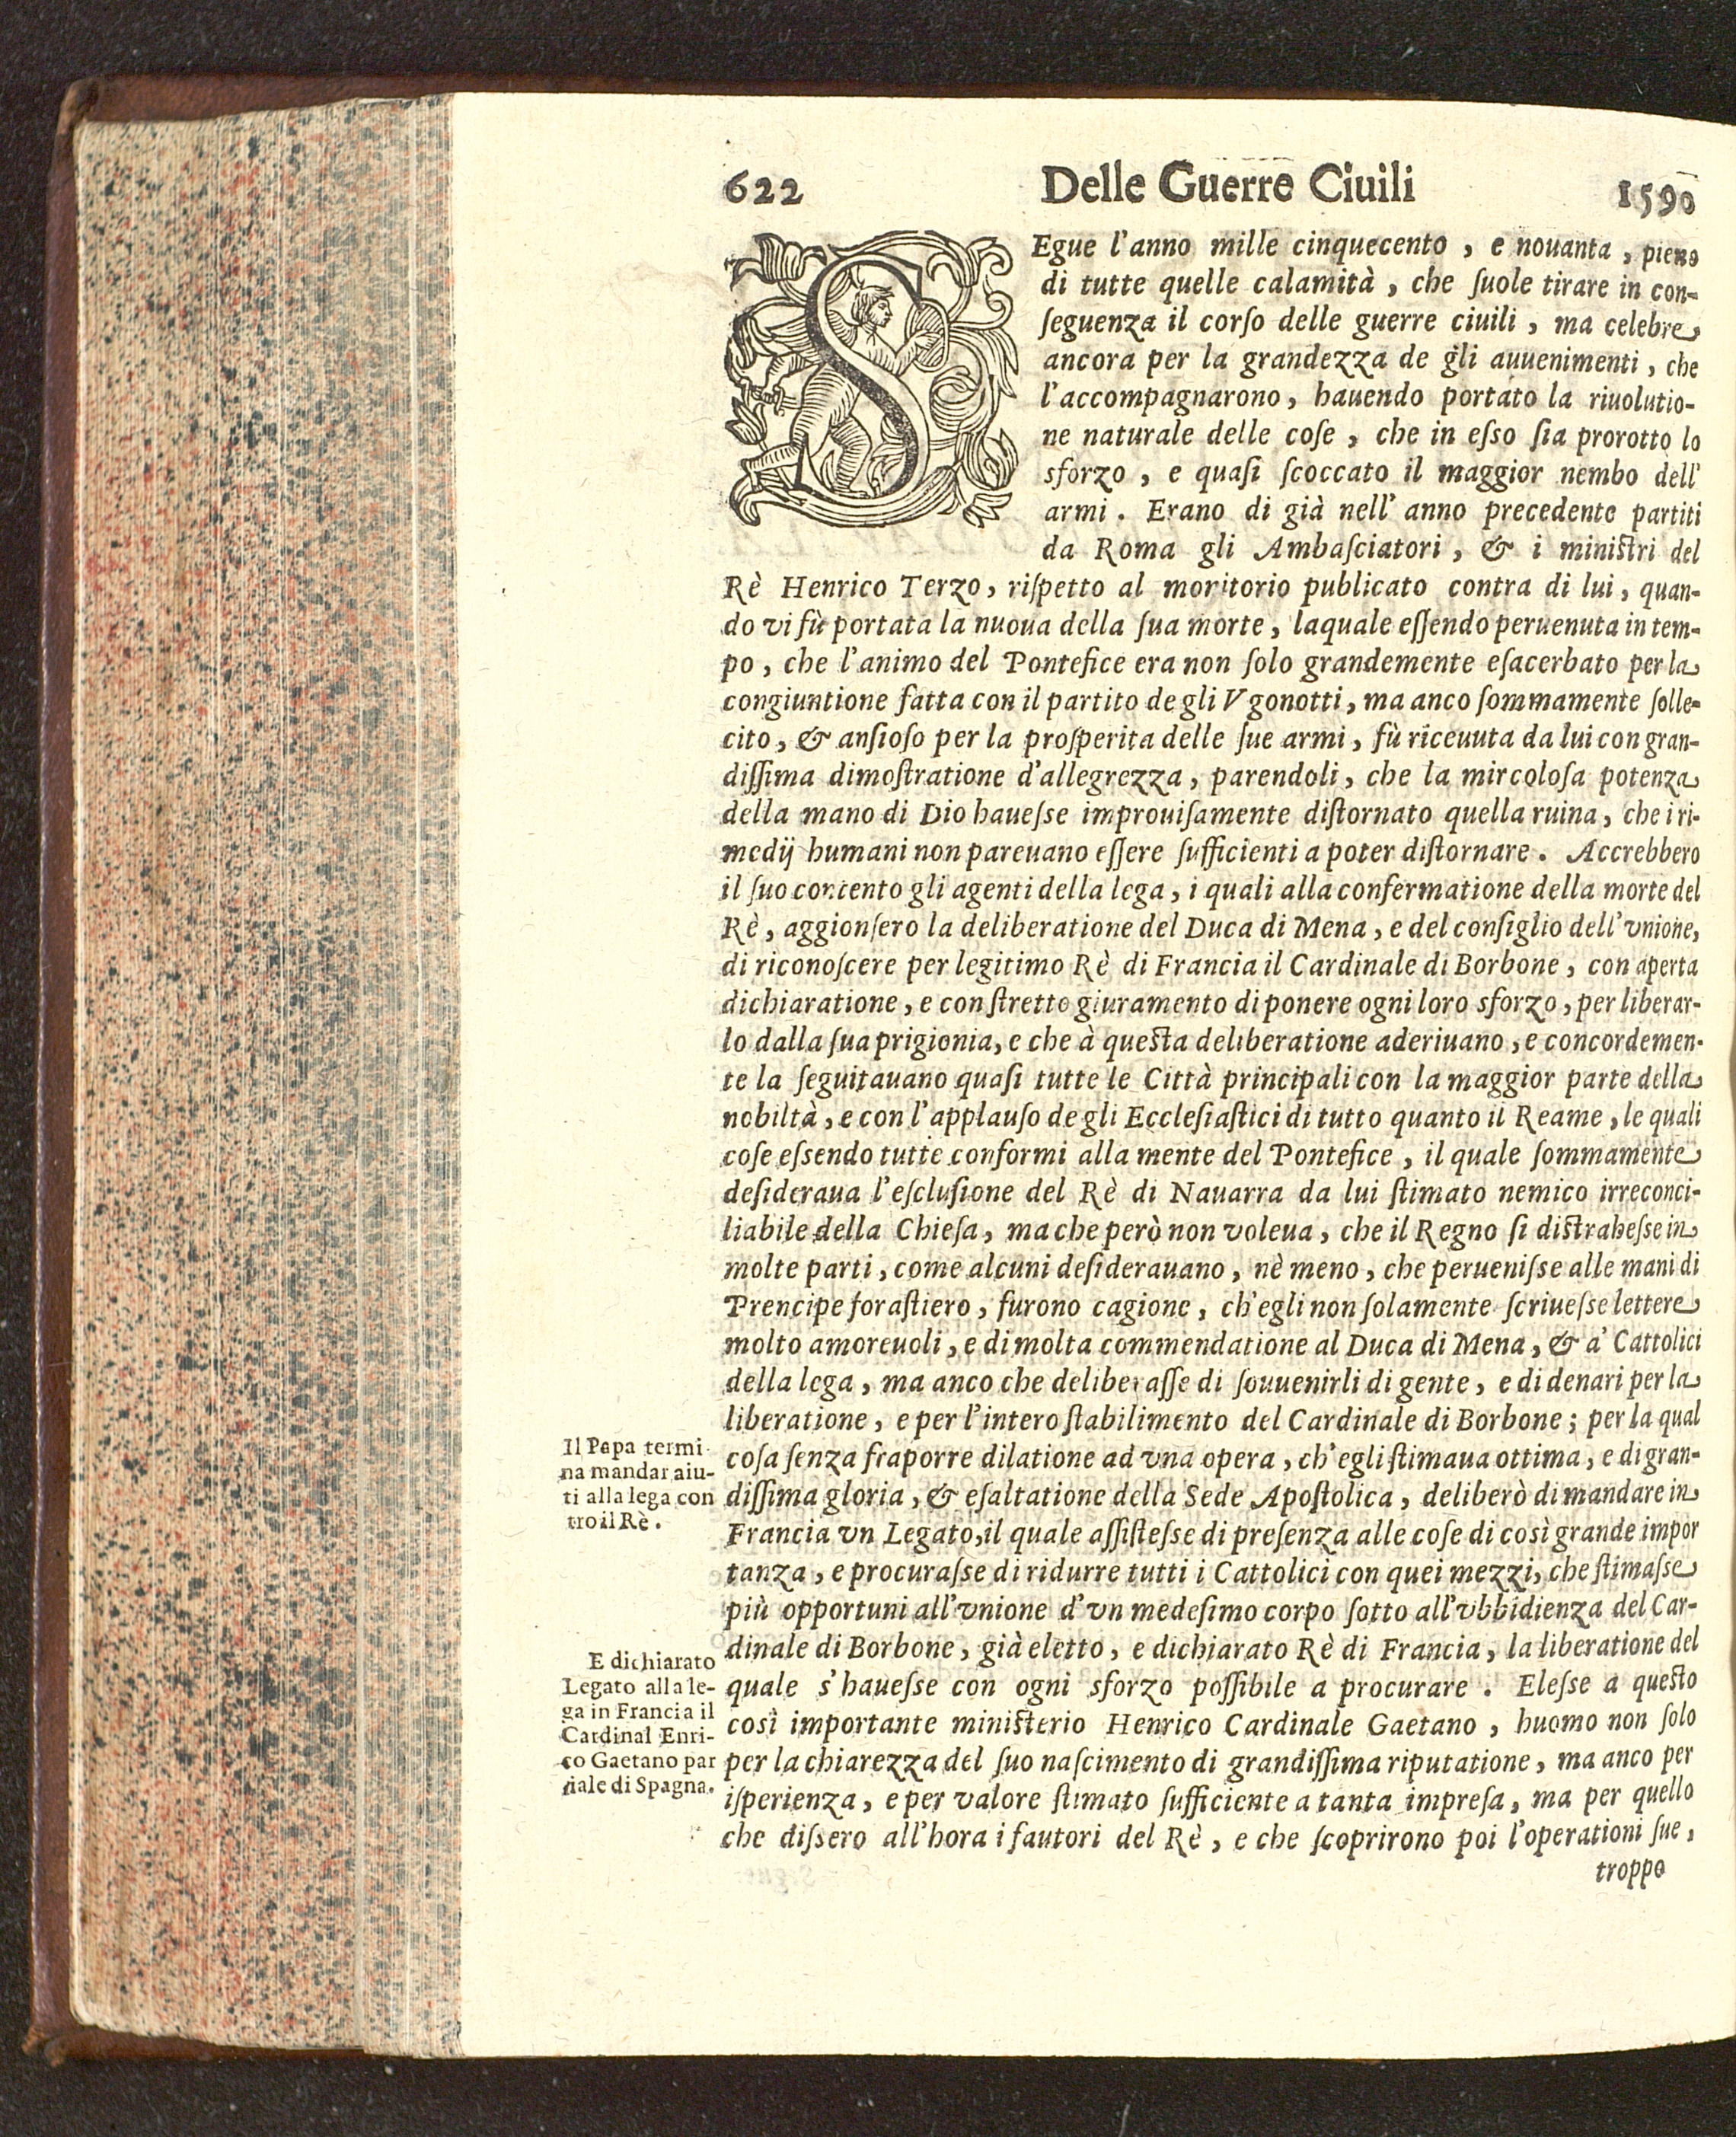 622 Delle Guerre Ciuili 1590
SEgue l'anno mille cinquecento, e nouanta, pieno
di tutte quelle calamità, che ſuole tirare in con-
ſeguenza il corſo delle guerre ciuili, ma celebre
ancora per la grandezza de gli auuenimenti, che
l'accompagnarono, hauendo portato la riuolutio-
ne naturale delle coſe, che in eſso ſia prorotto lo
sforzo, e quaſi ſcoccato il maggior nembo dell'
armi. Erano di già nell' anno precedente partiti
da Roma gli Ambaſciatori, & i miniſtri del
Rè Henrico Terzo, riſpetto al moritorio publicato contra di lui, quan-
do vi fù portata la nuoua della ſua morte, laquale eſſendo peruenuta in tem-
po, che l'animo del Pontefice era non ſolo grandemente eſacerbato per la
congiuntione fatta con il partito de gli Vgonotti, ma anco ſommamente ſolle-
cito, & anſioſo per la proſperita delle ſue armi, fù riceuuta da lui con gran-
diſſima dimoſtratione d'allegrezza, parendoli, che la mircoloſa potenza
della mano di Dio haueſse improuiſamente diſtornato quella ruina, che i ri-
medij humani non pareuano eſſere ſufficienti a poter diſtornare. Accrebbero
il ſuo contento gli agenti della lega, i quali alla confermatione della morte del
Rè, aggionſero la deliberatione del Duca di Mena, e del conſiglio dell'vnione,
di riconoſcere per legitimo Rè di Francia il Cardinale di Borbone, con aperta
dichiaratione, e con ſtretto giuramento di ponere ogni loro sforzo, per liberar-
lo dalla ſua prigionia, e che à queſta deliberatione aderiuano, e concordemen-
te la ſeguitauano quaſi tutte le Città principali con la maggior parte della
nobiltà, e con l'applauſo de gli Eccleſiaſtici di tutto quanto il Reame, le quali
coſe eſsendo tutte conformi alla mente del Pontefice, il quale ſommamente
deſideraua l'eſcluſione del Rè di Nauarra da lui ſtimato nemico irreconci-
liabile della Chieſa, ma che però non voleua, che il Regno ſi diſtraheſse in
molte parti, come alcuni deſiderauano, nè meno, che perueniſse alle mani di
Prencipe foraſtiero, furono cagione, ch'egli non ſolamente ſcriueſse lettere
molto amoreuoli, e di molta commendatione al Duca di Mena, & a' Cattolici
della lega, ma anco che deliberaſſe di ſouuenirli di gente, e di denari per la
liberatione, e per l'intero ſtabilimento del Cardinale di Borbone; per la qual
Il Papa termi-
na mandar aiu-
ti alla lega con
tro il Rè.
coſa ſenza fraporre dilatione ad vna opera, ch'egli ſtimaua ottima, e di gran-
diſſima gloria, & eſaltatione della Sede Apoſtolica, deliberò di mandare in
Francia vn Legato, il quale aſſiſteſse di preſenza alle coſe di così grande impor
tanza, e procuraſse di ridurre tutti i Cattolici con quei mezzi, che ſtimaſse
più opportuni all'vnione d'vn medeſimo corpo ſotto all'vbbidienza del Car-
dinale di Borbone, già eletto, e dichiarato Rè di Francia, la liberatione del
E dichiarato
Legato alla le-
ga in Francia il
Cardinal Enri-
co Gaetano par
tiale di Spagna.
quale s'haueſse con ogni sforzo poſſibile a procurare. Eleſse a queſto
così importante miniſterio Henrico Cardinale Gaetano, huomo non ſolo
per la chiarezza del ſuo naſcimento di grandiſſima riputatione, ma anco per
iſperienza, e per valore ſtimato ſufficiente a tanta impreſa, ma per quello
che diſsero all'hora i fautori del Rè, e che ſcoprirono poi l'operationi ſue,
troppo